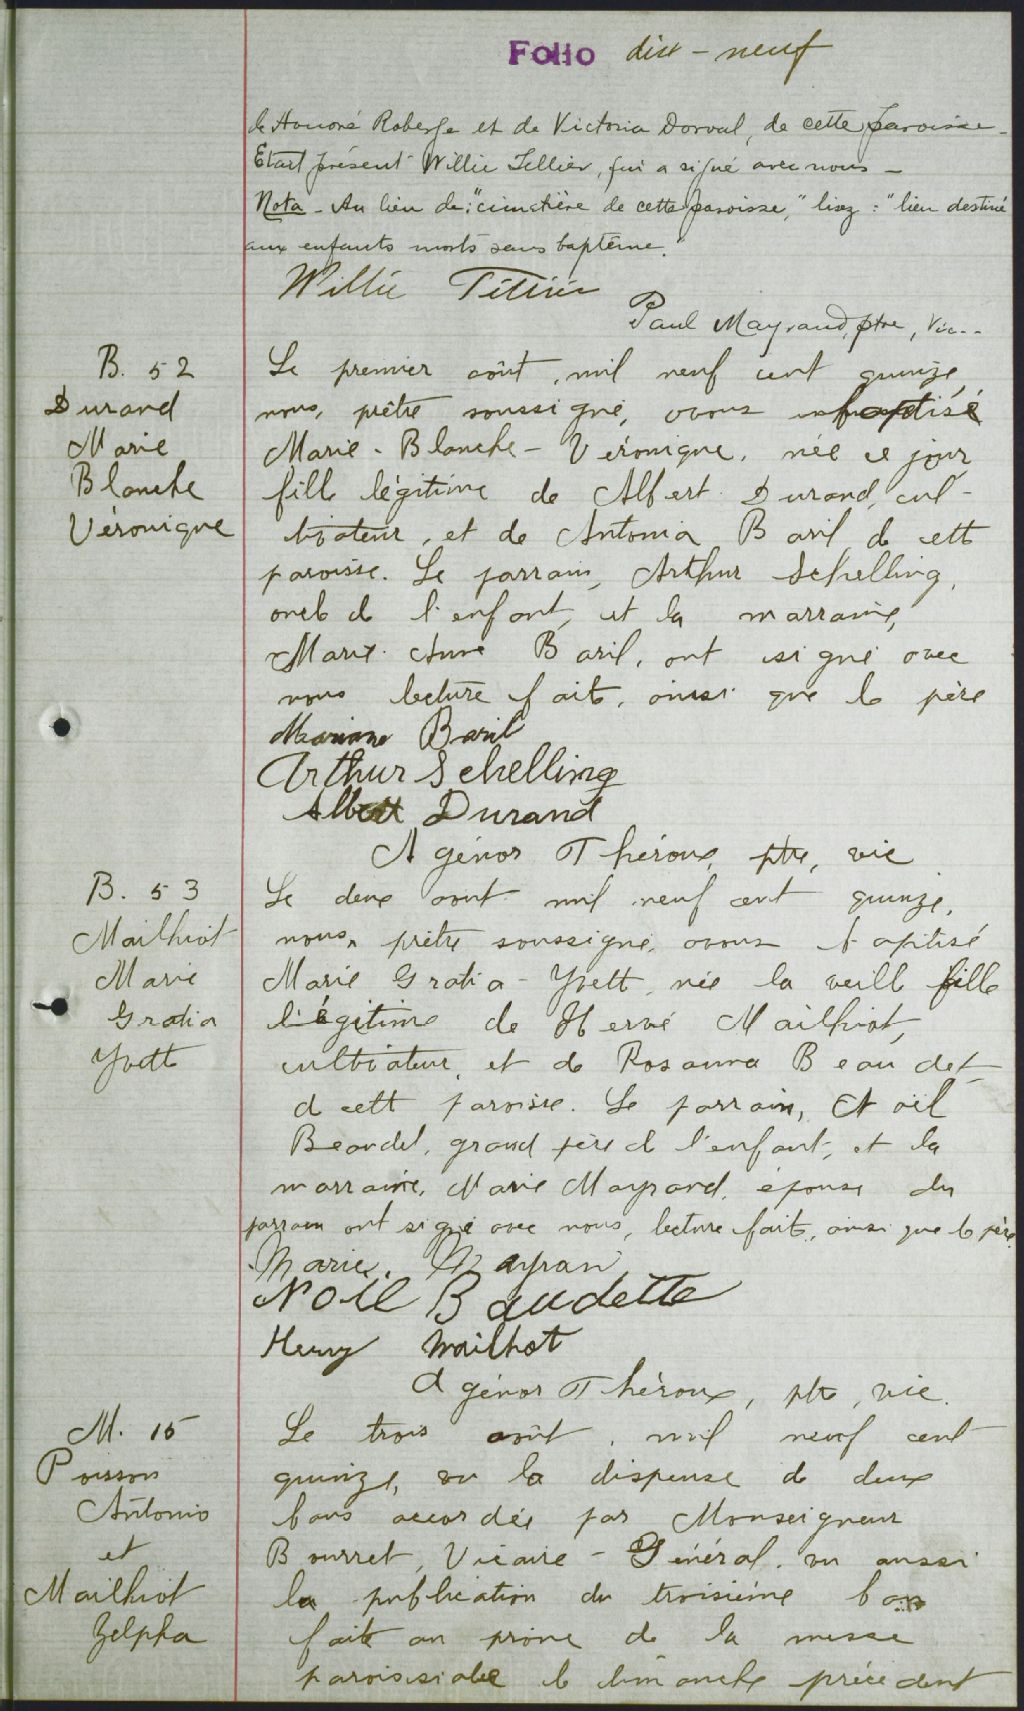 Folio dix-neuf
de Honoré Roberge et de Victoria Dorval, de cette paroisse.
Etait présent Willie Tellier, qui a signé avec nous –
Nota – Au lieu de: "cimetière de cette paroisse," lisez: "lieu destiné
aux enfants morts sans baptême."
Willie Tellier
Paul Mayrand, ptre, vic..
B. 52
Durand
Marie
Blanche
Véronique
Le premier août, mil neuf cent quinze,
nous, prêtre soussigné, avons baptisé
Marie-Blanche-Véronique, née ce jour,
fille légitime de Albert Durand, cul-
tivateur, et de Antonia Baril de cette
paroisse. Le parrain, Arthur Schelling,
oncle de l'enfant, et la marraine,
Marie-Anne Baril, ont signé avec
nous lecture faite, ainsi que le père
Mariane Baril
Arthur Schelling
Albert Durand
Agénor Théroux, ptre, vic
B. 53
Mailhiot
Marie
Gratia
Yvette
Le deux août mil neuf cent quinze,
nous, prêtre soussigné, avons baptisé
Marie Gratia-Yvette, née la veille fille
légitime de Hervé Mailhiot,
cultivateur, et de Rosanna Beaudet
de cette paroisse. Le parrain, Noël
Beaudet, grand père de l'enfant, et la
marraine, Marie Mayrand, épouse du
parrain ont signé avec nous, lecture faite, ainsi que le père.
Marie Mayran
Noël Baudette
Henry Mailhot
Agénor Théroux, ptre, vic.
M. 15
Poisson
Antonio
et
Mailhiot
Zelpha
Le trois août, mil neuf cent
quinze, vu la dispense de deux
bans accordée par Monseigneur
Bourret, Vicaire-Général, vu aussi
la publication du troisième ban
faite au prône de la messe
paroissiale le dimanche précédent